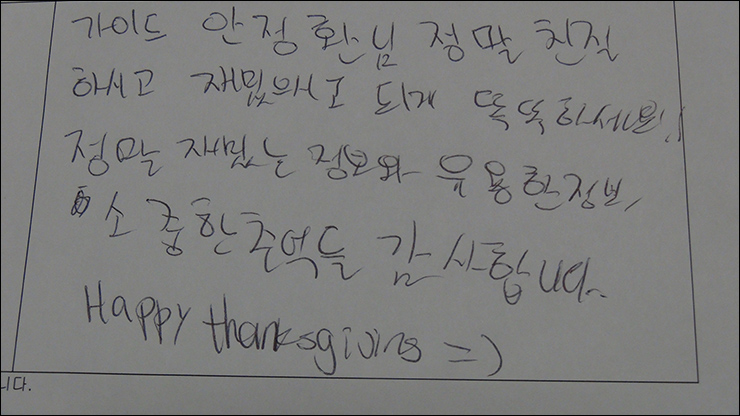 가이드 안정환님 정말 친절
하시고 재밌으시고 되게 똑똑하세요!!
정말 재밌는 정보와 유용한정보,
소중한추억들 감사합니다.
Happy thanksgiving =)
니다.